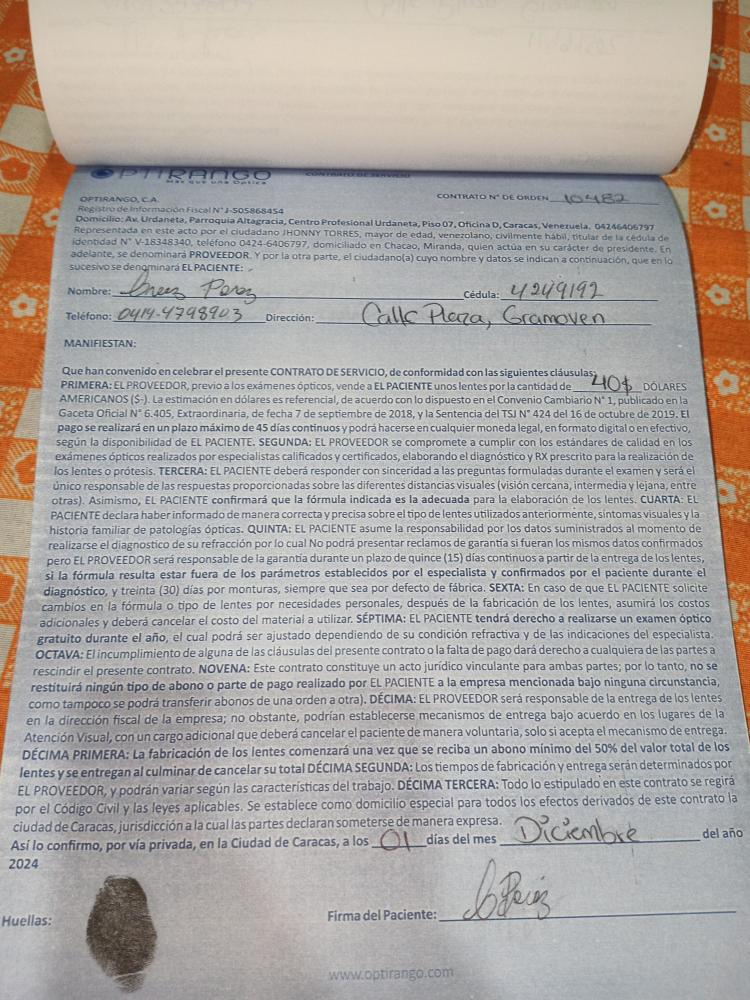 OPTIRANGO
Más que una Óptica
CONTRATO DE SERVICIO
OPTIRANGO, C.A.
CONTRATO N° DE ORDEN 10482
Registro de Información Fiscal N° J-505868454
Domicilio: Av. Urdaneta, Parroquia Altagracia, Centro Profesional Urdaneta, Piso 07, Oficina D, Caracas, Venezuela. 04246406797
Representada en este acto por el ciudadano JHONNY TORRES, mayor de edad, venezolano, civilmente hábil, titular de la cédula de
identidad N° V-18348340, teléfono 0424-6406797, domiciliado en Chacao, Miranda, quien actúa en su carácter de presidente. En
adelante, se denominará PROVEEDOR. Y por la otra parte, el ciudadano(a) cuyo nombre y datos se indican a continuación, que en lo
sucesivo se denominará EL PACIENTE:
Nombre: Perez Cédula: 4249192
Teléfono: 0414-4798903 Dirección: Calle Plaza, Gramoven
MANIFIESTAN:
Que han convenido en celebrar el presente CONTRATO DE SERVICIO, de conformidad con las siguientes cláusulas:
PRIMERA: EL PROVEEDOR, previo a los exámenes ópticos, vende a EL PACIENTE unos lentes por la cantidad de 40$ DÓLARES
AMERICANOS ($-). La estimación en dólares es referencial, de acuerdo con lo dispuesto en el Convenio Cambiario N° 1, publicado en la
Gaceta Oficial N° 6.405, Extraordinaria, de fecha 7 de septiembre de 2018, y la Sentencia del TSJ N° 424 del 16 de octubre de 2019. El
pago se realizará en un plazo máximo de 45 días continuos y podrá hacerse en cualquier moneda legal, en formato digital o en efectivo,
según la disponibilidad de EL PACIENTE. SEGUNDA: EL PROVEEDOR se compromete a cumplir con los estándares de calidad en los
exámenes ópticos realizados por especialistas calificados y certificados, elaborando el diagnóstico y RX prescrito para la realización de
los lentes o prótesis. TERCERA: EL PACIENTE deberá responder con sinceridad a las preguntas formuladas durante el examen y será el
único responsable de las respuestas proporcionadas sobre las diferentes distancias visuales (visión cercana, intermedia y lejana, entre
otras). Asimismo, EL PACIENTE confirmará que la fórmula indicada es la adecuada para la elaboración de los lentes. CUARTA: EL
PACIENTE declara haber informado de manera correcta y precisa sobre el tipo de lentes utilizados anteriormente, síntomas visuales y la
historia familiar de patologías ópticas. QUINTA: EL PACIENTE asume la responsabilidad por los datos suministrados al momento de
realizarse el diagnostico de su refracción por lo cual No podrá presentar reclamos de garantía si fueran los mismos datos confirmados
pero EL PROVEEDOR será responsable de la garantía durante un plazo de quince (15) días continuos a partir de la entrega de los lentes,
si la fórmula resulta estar fuera de los parámetros establecidos por el especialista y confirmados por el paciente durante el
diagnóstico, y treinta (30) días por monturas, siempre que sea por defecto de fábrica. SEXTA: En caso de que EL PACIENTE solicite
cambios en la fórmula o tipo de lentes por necesidades personales, después de la fabricación de los lentes, asumirá los costos
adicionales y deberá cancelar el costo del material a utilizar. SÉPTIMA: EL PACIENTE tendrá derecho a realizarse un examen óptico
gratuito durante el año, el cual podrá ser ajustado dependiendo de su condición refractiva y de las indicaciones del especialista.
OCTAVA: El incumplimiento de alguna de las cláusulas del presente contrato o la falta de pago dará derecho a cualquiera de las partes a
rescindir el presente contrato. NOVENA: Este contrato constituye un acto jurídico vinculante para ambas partes; por lo tanto, no se
restituirá ningún tipo de abono o parte de pago realizado por EL PACIENTE a la empresa mencionada bajo ninguna circunstancia,
como tampoco se podrá transferir abonos de una orden a otra). DÉCIMA: EL PROVEEDOR será responsable de la entrega de los lentes
en la dirección fiscal de la empresa; no obstante, podrían establecerse mecanismos de entrega bajo acuerdo en los lugares de la
Atención Visual, con un cargo adicional que deberá cancelar el paciente de manera voluntaria, solo si acepta el mecanismo de entrega.
DÉCIMA PRIMERA: La fabricación de los lentes comenzará una vez que se reciba un abono mínimo del 50% del valor total de los
lentes y se entregan al culminar de cancelar su total DÉCIMA SEGUNDA: Los tiempos de fabricación y entrega serán determinados por
EL PROVEEDOR, y podrán variar según las características del trabajo. DÉCIMA TERCERA: Todo lo estipulado en este contrato se regirá
por el Código Civil y las leyes aplicables. Se establece como domicilio especial para todos los efectos derivados de este contrato la
ciudad de Caracas, jurisdicción a la cual las partes declaran someterse de manera expresa.
Así lo confirmo, por vía privada, en la Ciudad de Caracas, a los 01 días del mes Diciembre del año
2024
Huellas:
Firma del Paciente: Perez
www.optirango.com